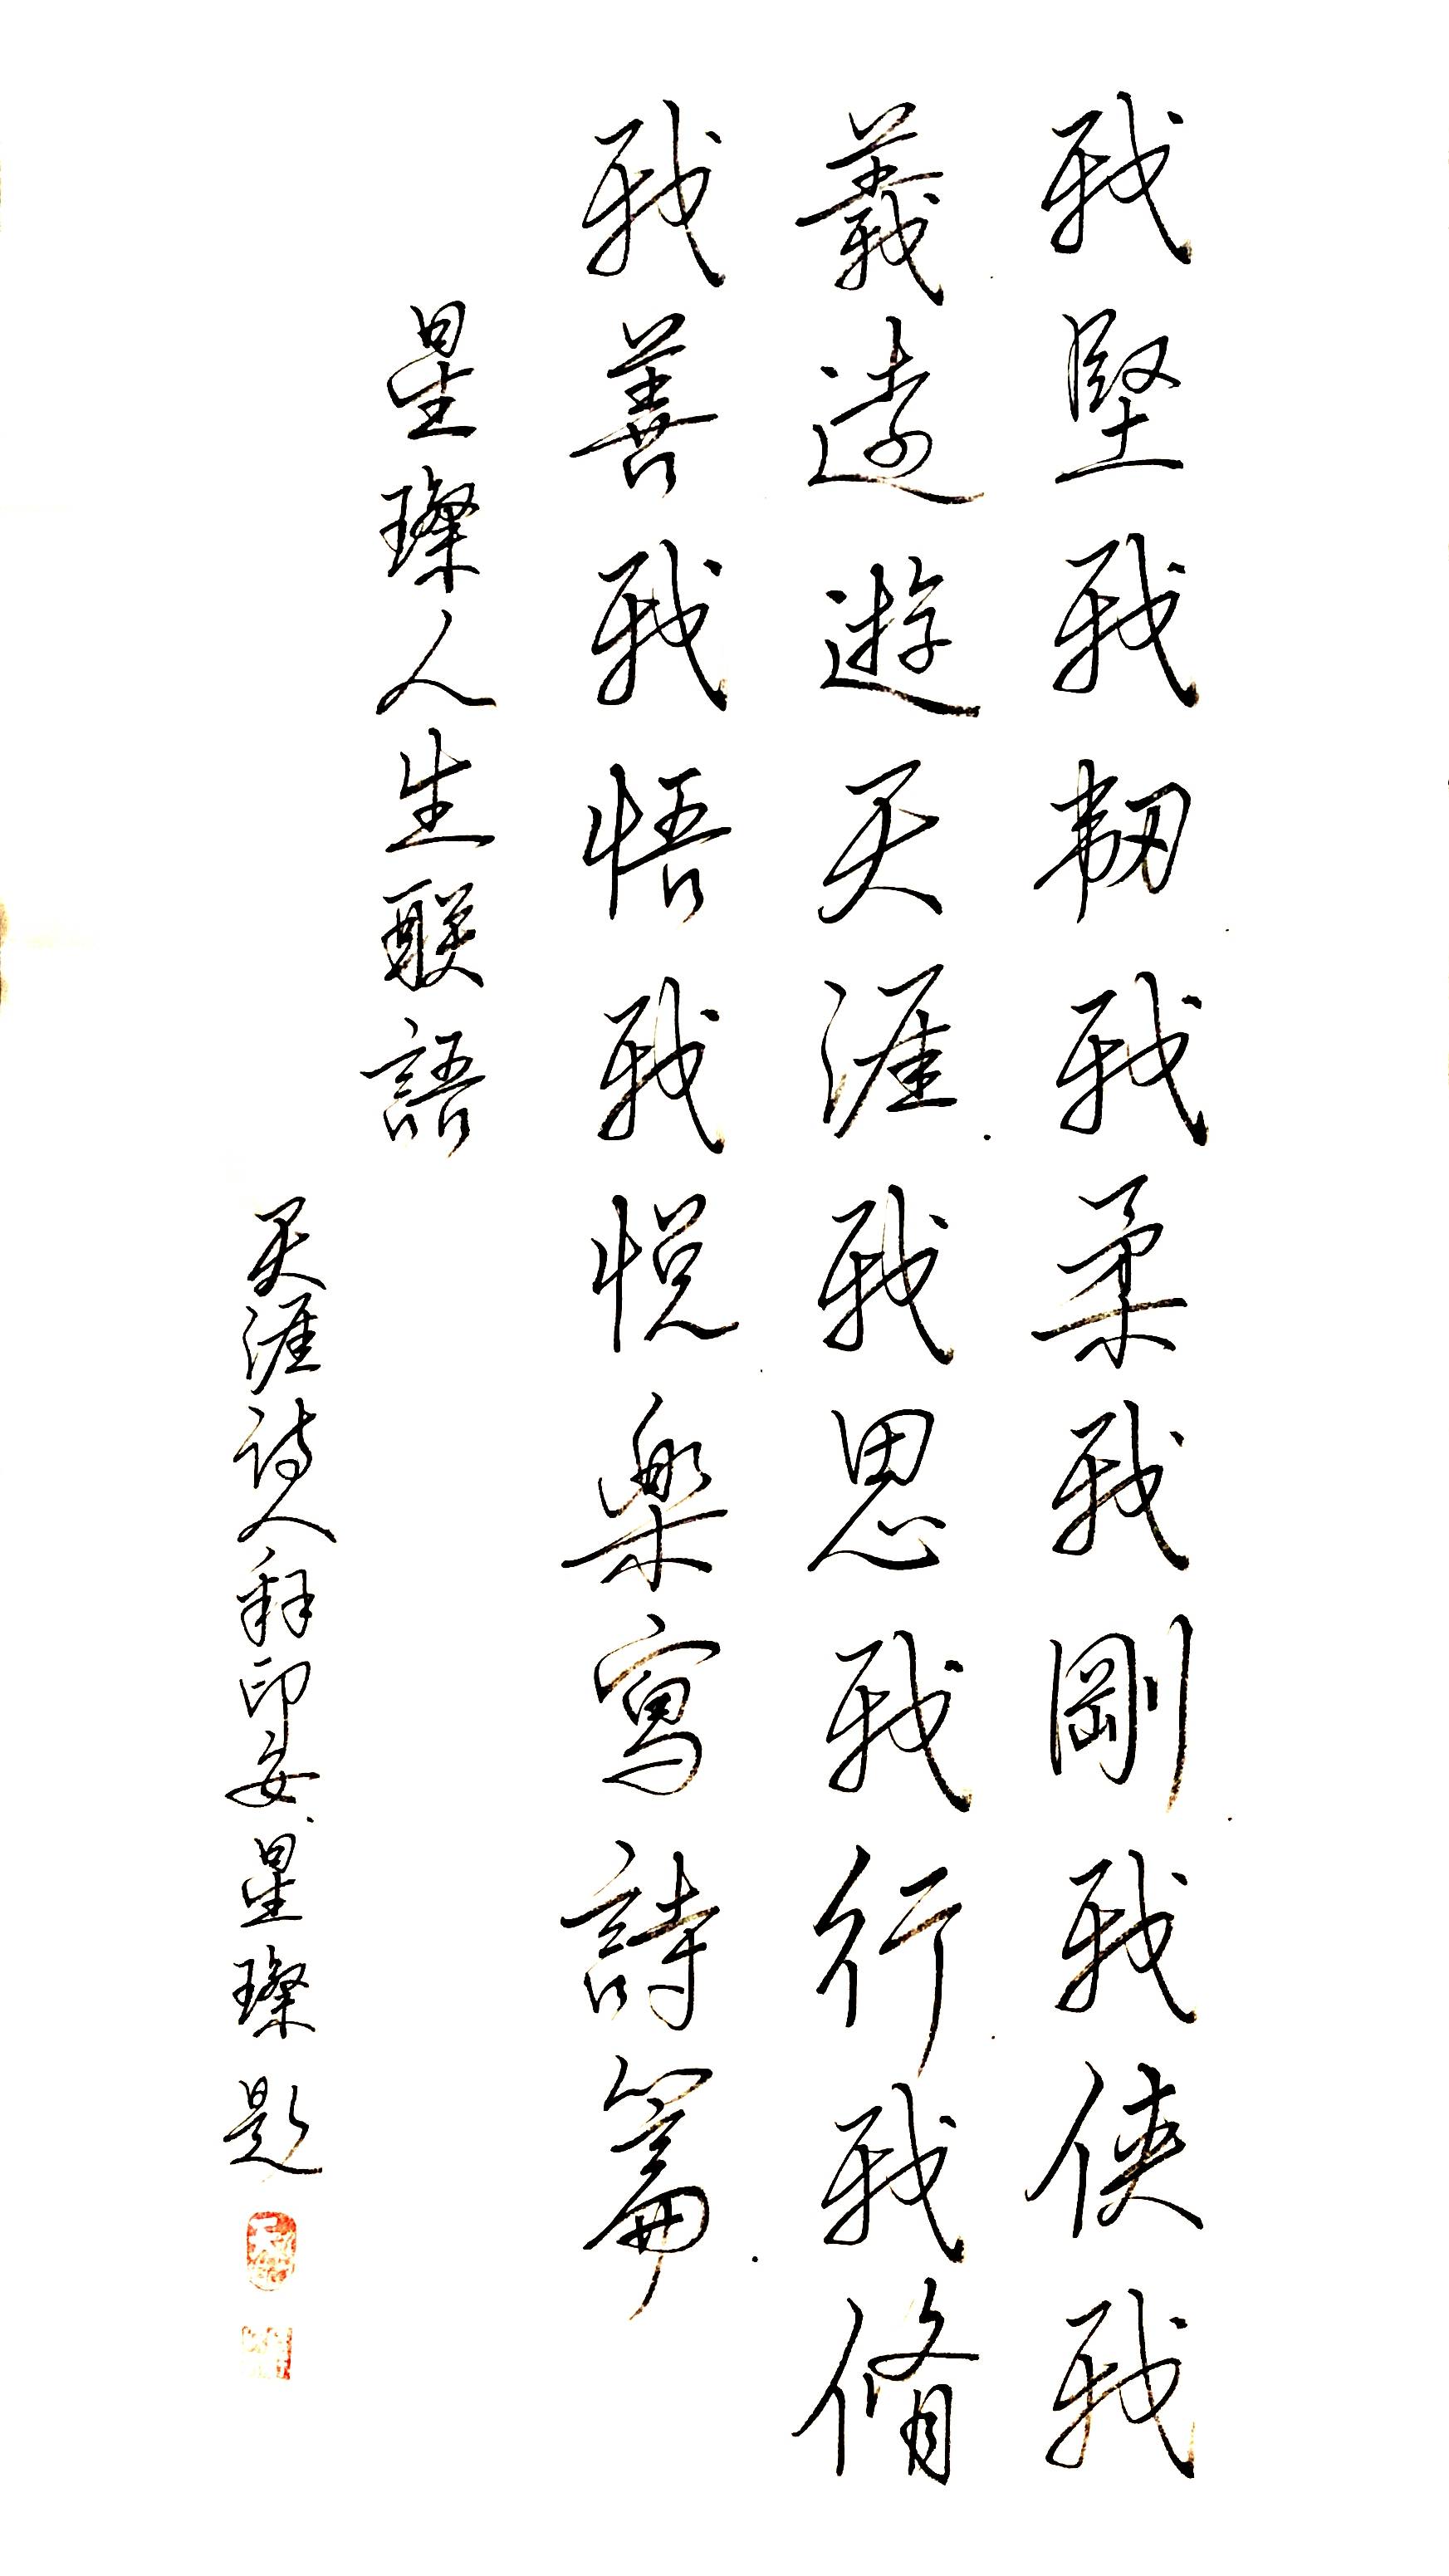 我堅我韌我柔我剛我俠我
義遠遊天涯我思我行我脩
我善我悟我悦樂寫詩篇
星璨人生联語
天涯诗人释印安星璨题